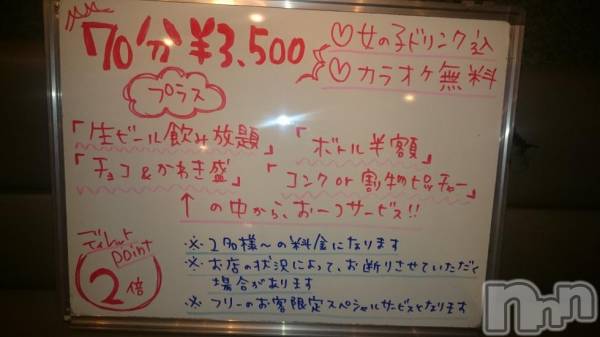 70分¥3,500
♡女の子ドリンク込
♡カラオケ無料
プラス
「生ビール飲み放題」
「ボトル半額」
「チョコ&かわき盛」
「コンクor割物ピッチャー」
↑の中から、お一つサービス!!
ディレット
point
2倍
※2名様〜の料金になります
※お店の状況によって、お断りさせていただく
場合があります
※フリーのお客限定スペシャルサービスとなります
nnn